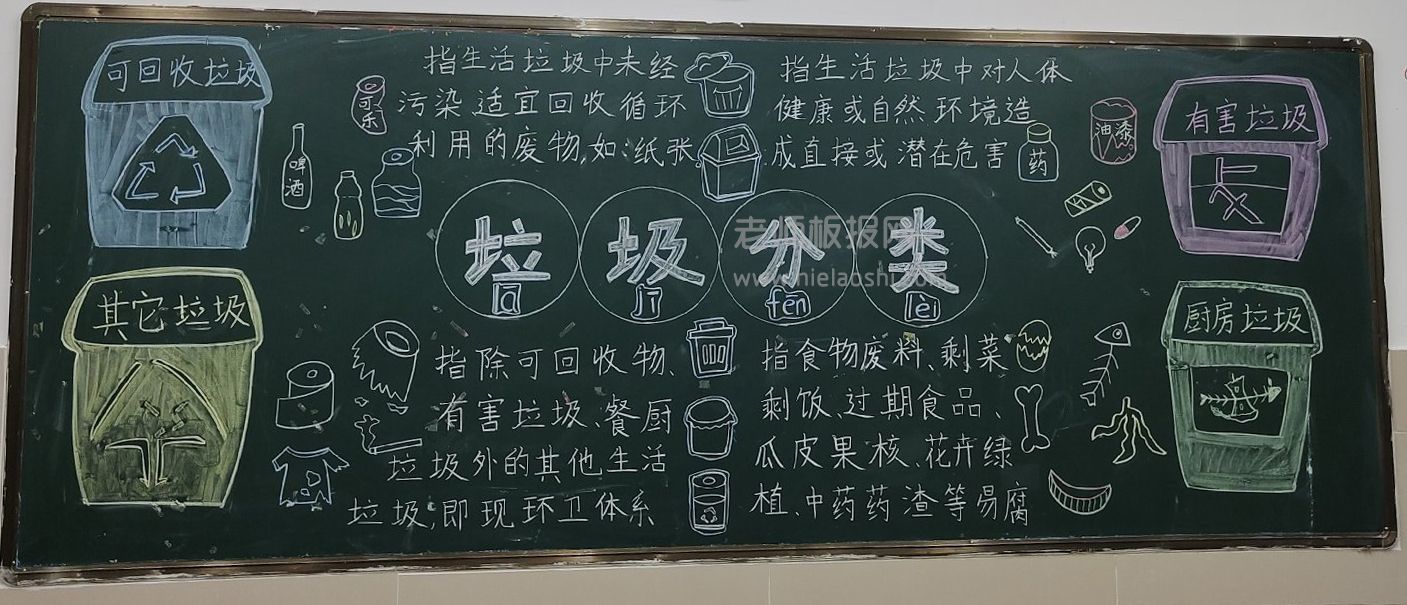 可回收垃圾
可乐
啤酒
指生活垃圾中未经
污染、适宜回收循环
利用的废物,如:纸张。
指生活垃圾中对人体
健康或自然环境造
成直接或潜在危害
药
油漆
有害垃圾
垃圾分类
jī fēn lèi
老师板报网
其它垃圾
指除可回收物、
有害垃圾、餐厨
垃圾外的其他生活
垃圾,即现环卫体系
指食物废料、剩菜
剩饭、过期食品、
瓜皮果核、花卉绿
植、中药药渣等易腐
厨房垃圾